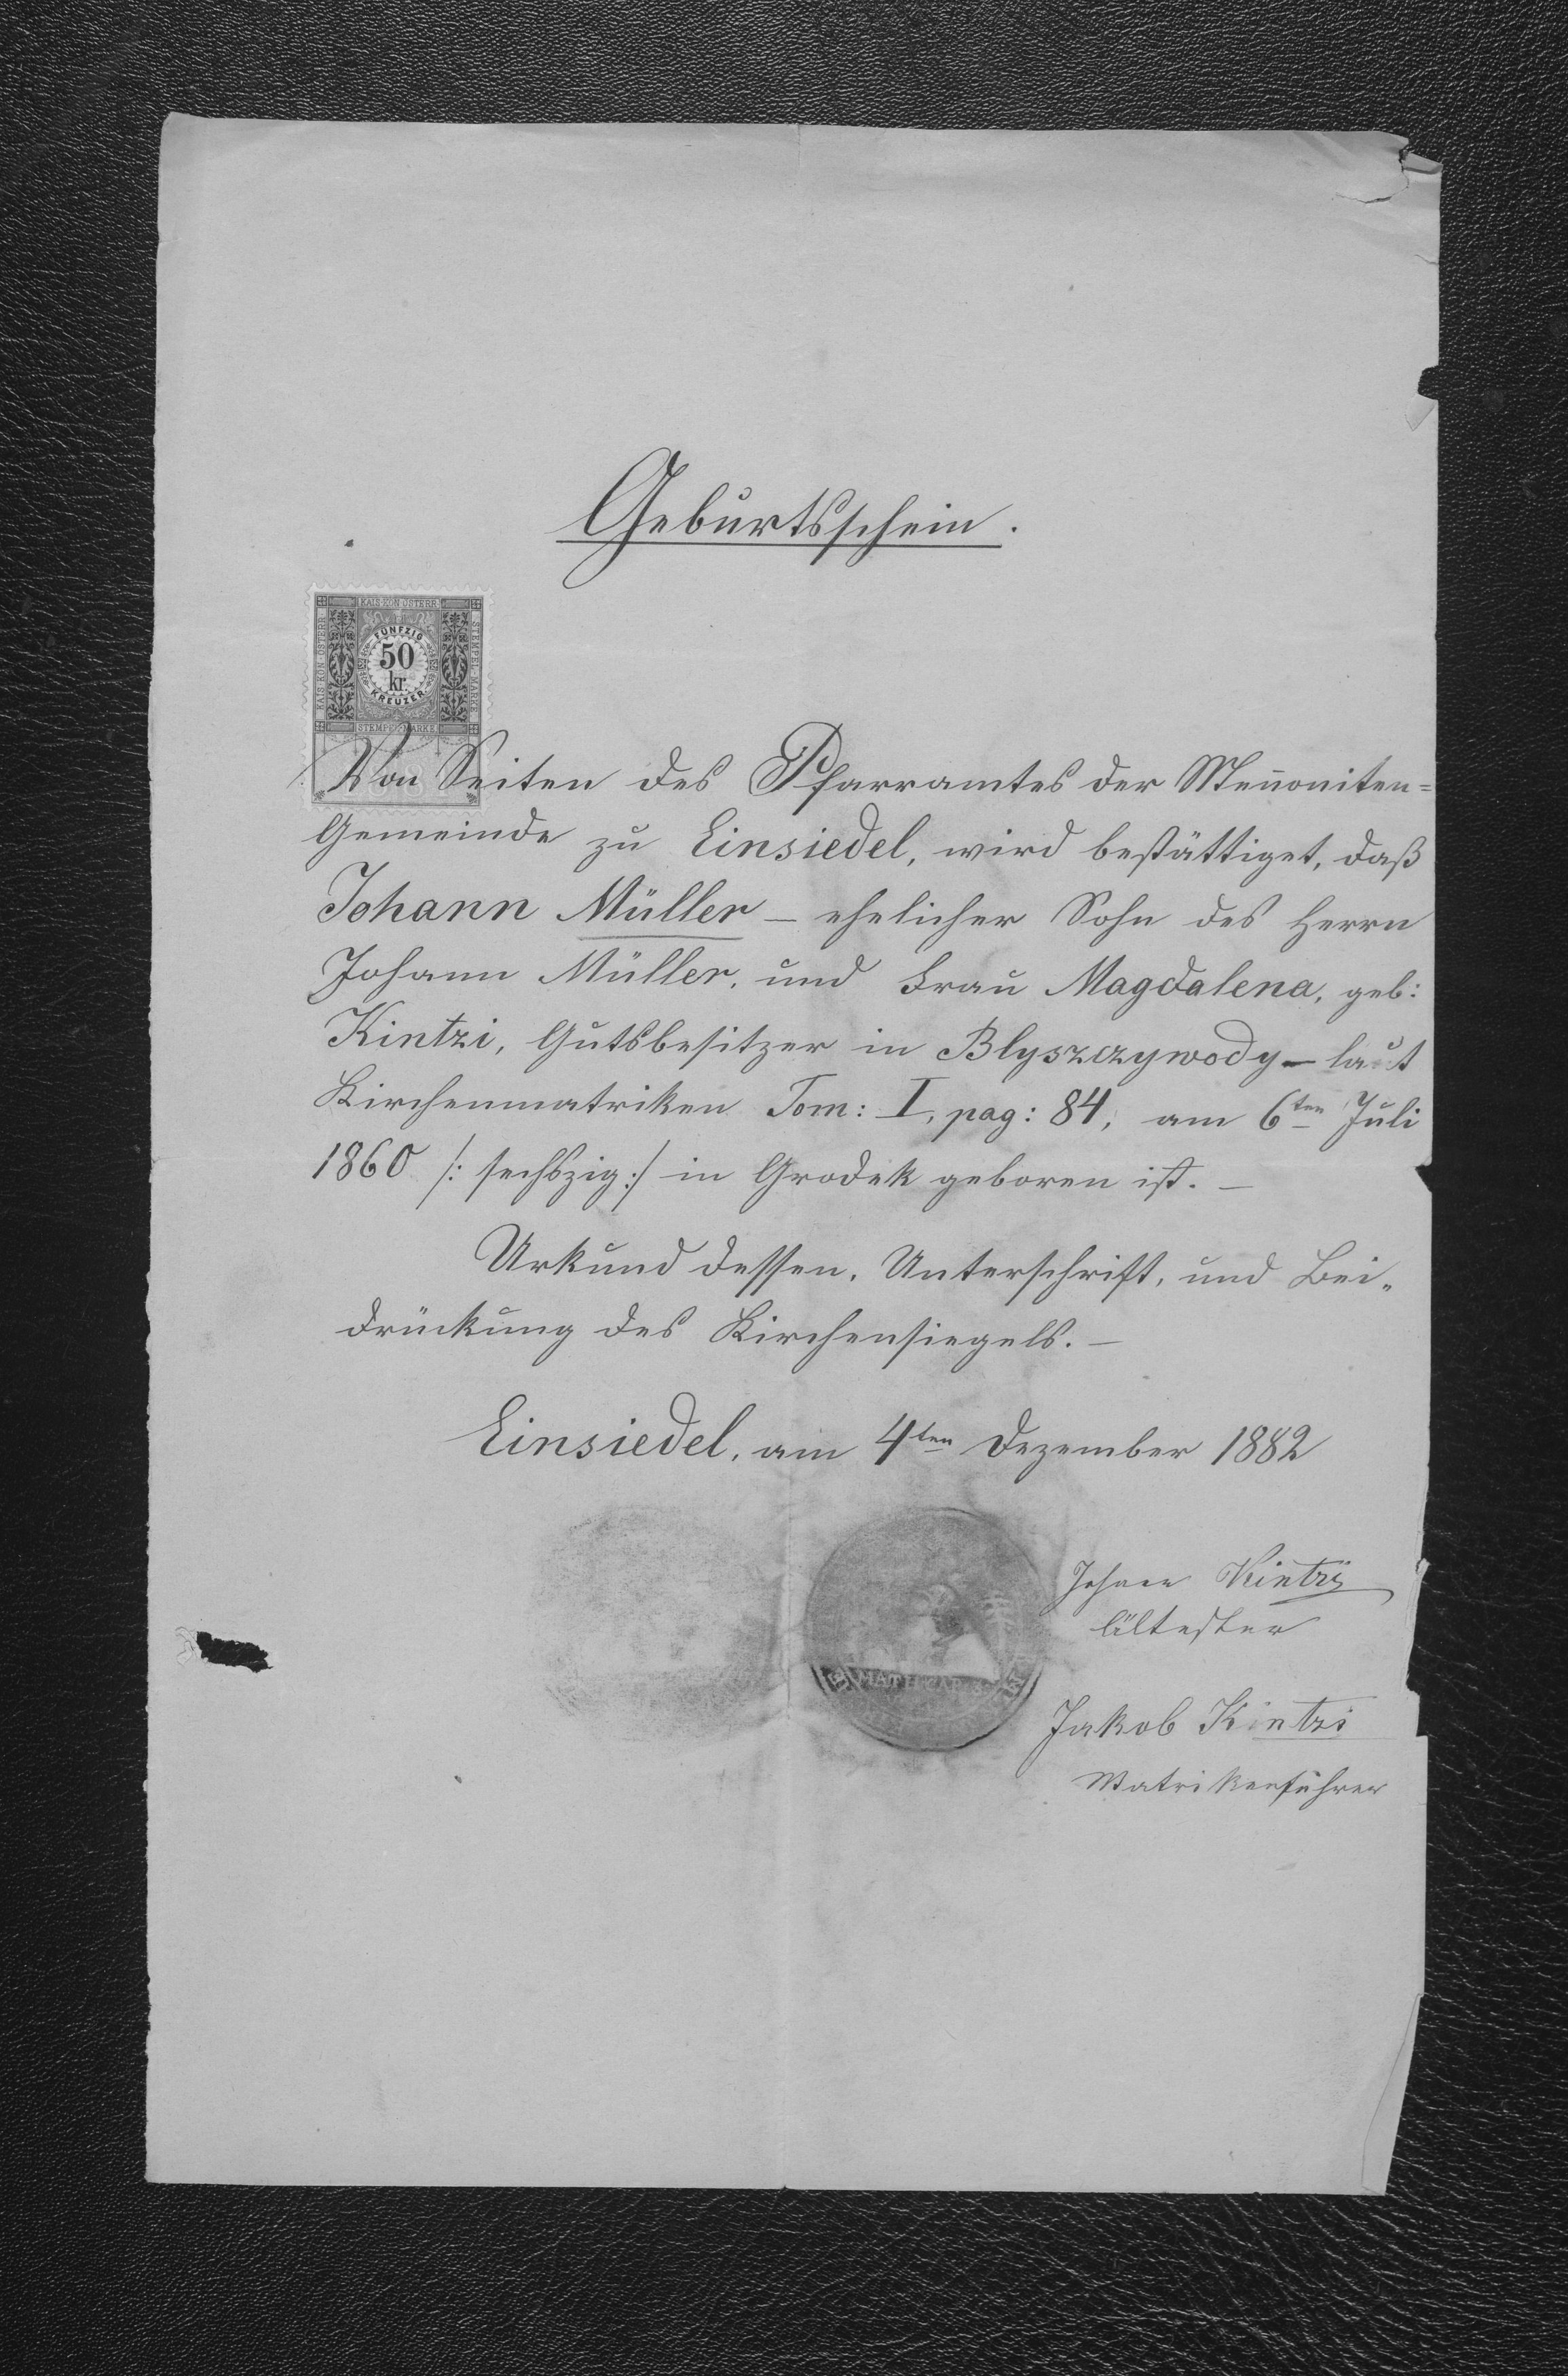 Geburtsschein.
KAIS. KÖN. ÖSTERR.
KAIS. KÖN. ÖSTERR.
STEMPEL-MARKE
FÜNFZIG
50
kr.
KREUZER
STEMPEL-MARKE
Von Seiten des Pfarramtes der Mennoniten=
Gemeinde zu Einsiedel, wird bestättiget, daß
Johann Müller – ehelicher Sohn des Herrn
Johann Müller, und Frau Magdalena, geb:
Kintzi, Gutsbesitzer in Blyszczywody – laut
Kirchenmatriken Tom: I, pag: 84, am 6ten Juli
1860 /: sechszig :/ in Grodek geboren ist. –
Urkund dessen, Unterschrift, und Bei„
drückung des Kirchensiegels. –
Einsiedel, am 4ten Dezember 1882
Johann Kintzi
Ältester
Jakob Kintzi
Matrikenführer